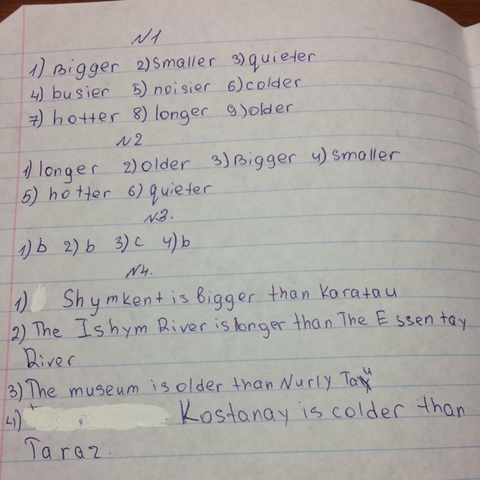 N1
1) Bigger 2) smaller 3) quieter
4) busier 5) noisier 6) colder
7) hotter 8) longer 9) older
N2
1) longer 2) older 3) Bigger 4) smaller
5) hotter 6) quieter
N3.
1) b 2) b 3) c 4) b
N4.
1) Shymkent is Bigger than Karatau
2) The Ishym River is longer than The Essentay
River
3) The museum is older than Nurly Tau
4) Kostanay is colder than
Taraz.